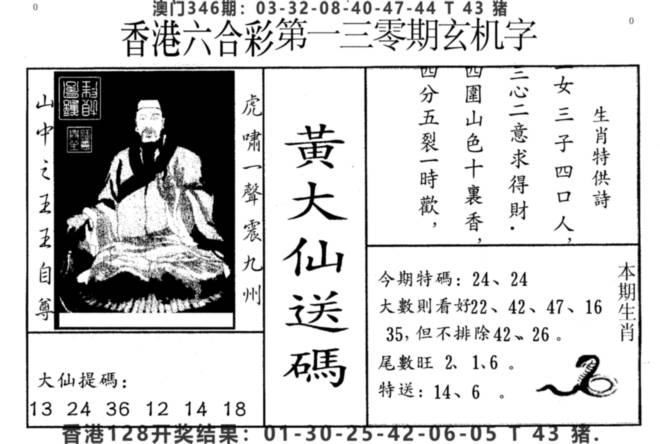 澳门346期：03-32-08-40-47-44 T 43 猪
香港六合彩第一三零期玄机字
虎嘯一聲震九州
山中之王王自尊
黃大仙送碼
生肖特供詩
一女三子四口人，
三心二意求得財．
四圍山色十裏香，
四分五裂一時歡，
本期生肖
今期特碼：24、24
大數則看好22、42、47、16
35，但不排除42、26。
尾數旺 2、1、6。
特送：14、6。
大仙提碼：
13 24 36 12 14 18
香港128开奖结果：01-30-25-42-06-05 T 43 猪.